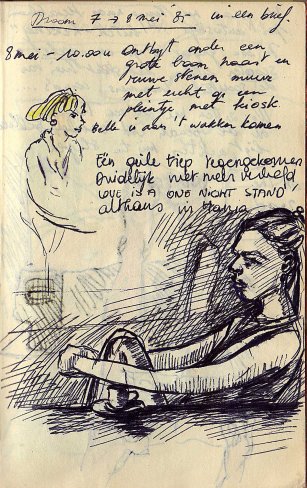 Droom 7 → 8 mei '85 in een brief.
8 mei - 10.00u ontbyt onder een
grote boom naast een
ruwe stenen muur
met zicht op een
pleintje met kiosk
Belle is aan 't wakker komen
Eén geile tiep tegengekomen
Duidelijk niet veel
LOVE IS A ONE NIGHT STAND
althans in